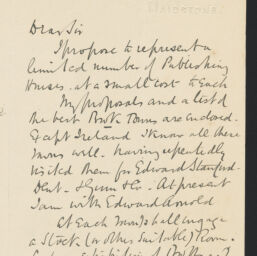 Dear Sir
I propose to represent a
limited number of Publishing
Houses at a small cost to each
My proposals and a list of
the best Book Towns are enclosed.
Except Ireland I know all these
towns well. having repeatedly
visited them for Edward Stanford.
Dent & Co. At present
I am with Edward Arnold
At each town I shall engage
a Stock (or other suitable) Room.